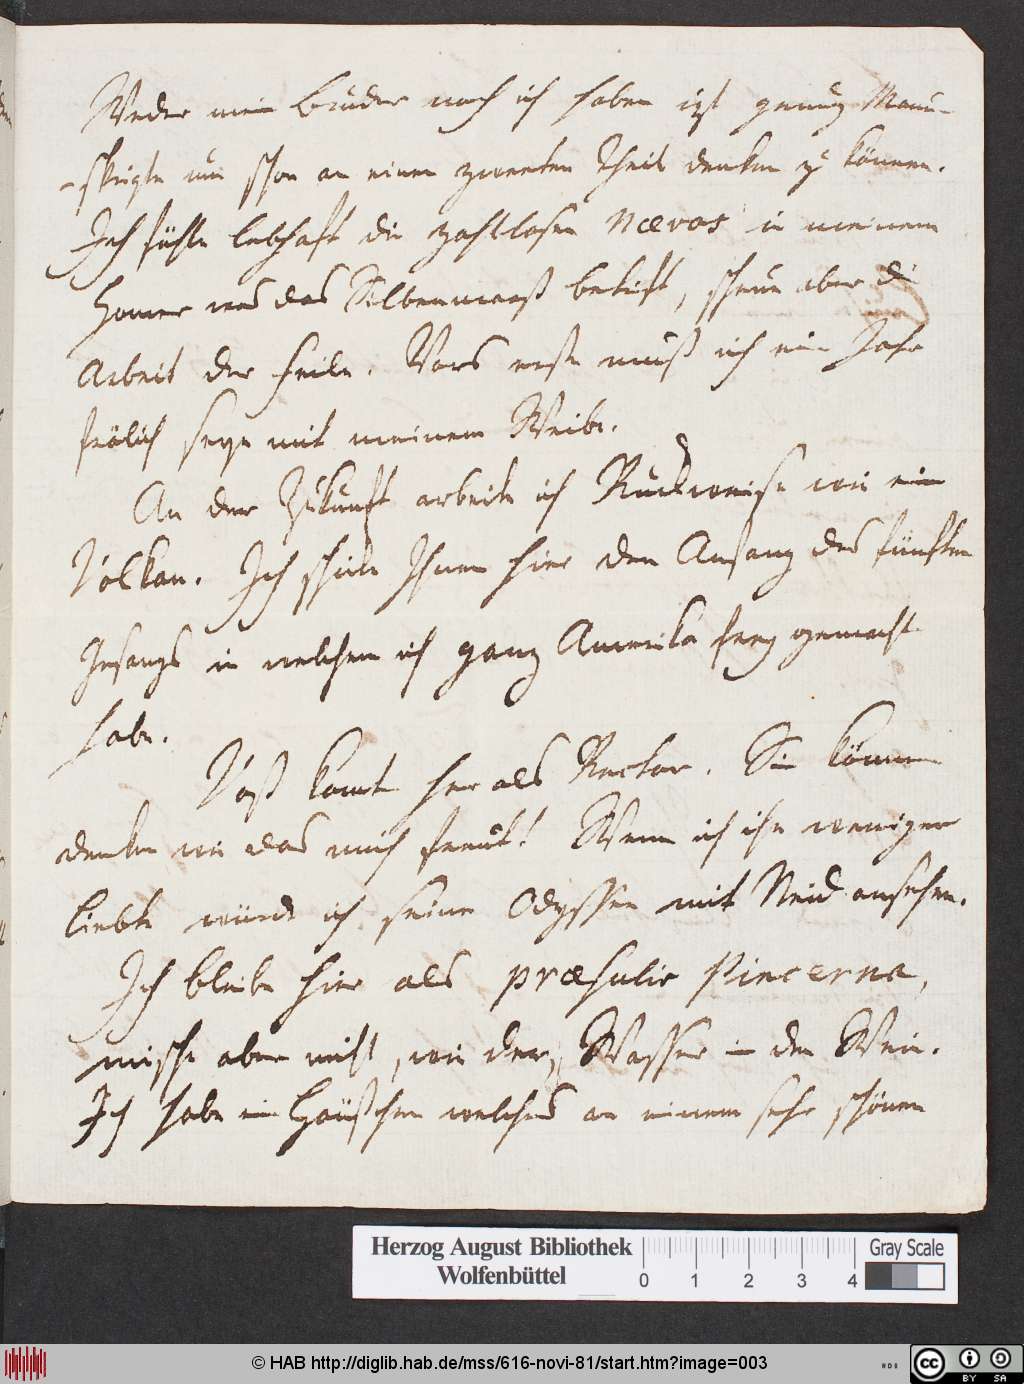 Weder mein Bruder noch ich haben izt genug Manu-
-skripte um schon an einen zweeten Theil denken zu können.
Ich fühle lebhaft die zahllosen Nævos in meinem
Homer was das Silbenmaaß betrift, scheue aber die
Arbeit der Feile. Vors erste muß ich ein Jahr
frölich seyn mit meinem Weibe.
An der Zukunft arbeite ich Ruckweise wie ein
Volkan. Ich schicke Ihnen hier den Anfang des fünften
Gesangs in welchem ich ganz Amerika frey gemacht
habe.
Voß komt her als Rector. Sie können
denken wie das mich freut! Wenn ich ihn weniger
liebte würde ich seine Odyssee mit Neid ansehen.
Ich bleibe hier als præsulis Pincerna,
mische aber nicht, wie der, Wasser in den Wein.
Ich habe ein Häußchen welches an einem sehr schönen
Herzog August Bibliothek
Wolfenbüttel
0 1 2 3 4
Gray Scale
© HAB http://diglib.hab.de/mss/616-novi-81/start.htm?image=003
cc BY SA